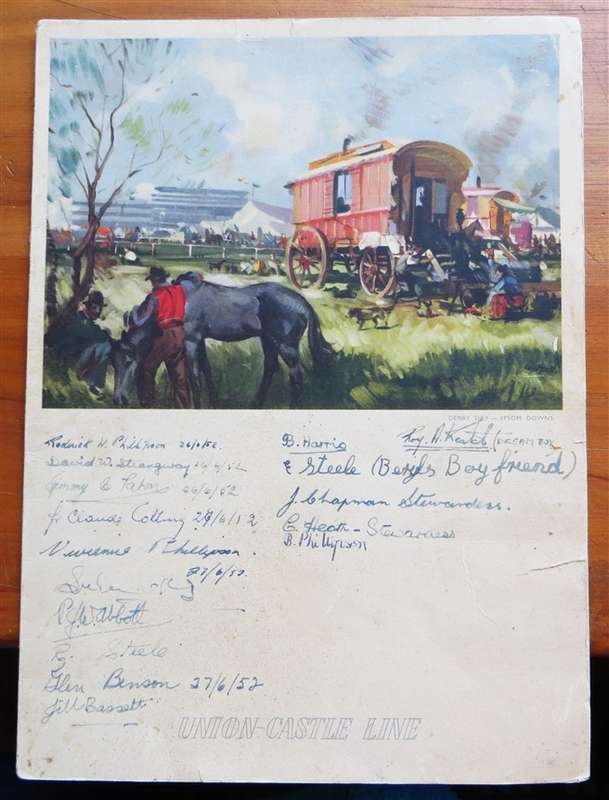 DERBY DAY — EPSOM DOWNS
Roderick W. Phillipson 26/6/52.
David W. Strangway 26/6/52
26/6/52
fr Claude Collins 27/6/52
Vivienne Phillipson.
27/6/52.
Abbott
Steele
Glen Benson 27/6/52
Jill Bassett
B. Harris
Roy. A. (DREAM BOY
& Steele (Beryls Boyfriend)
J. Chapman Stewardess.
C. Heath - Stewardess
B. Phillipson
UNION-CASTLE LINE